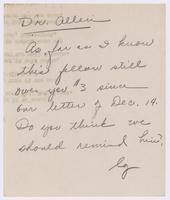 Dr. Allen
As far as I know
this fellow still
owes you $3 since
our letter of Dec. 19.
Do you think we
should remind him?